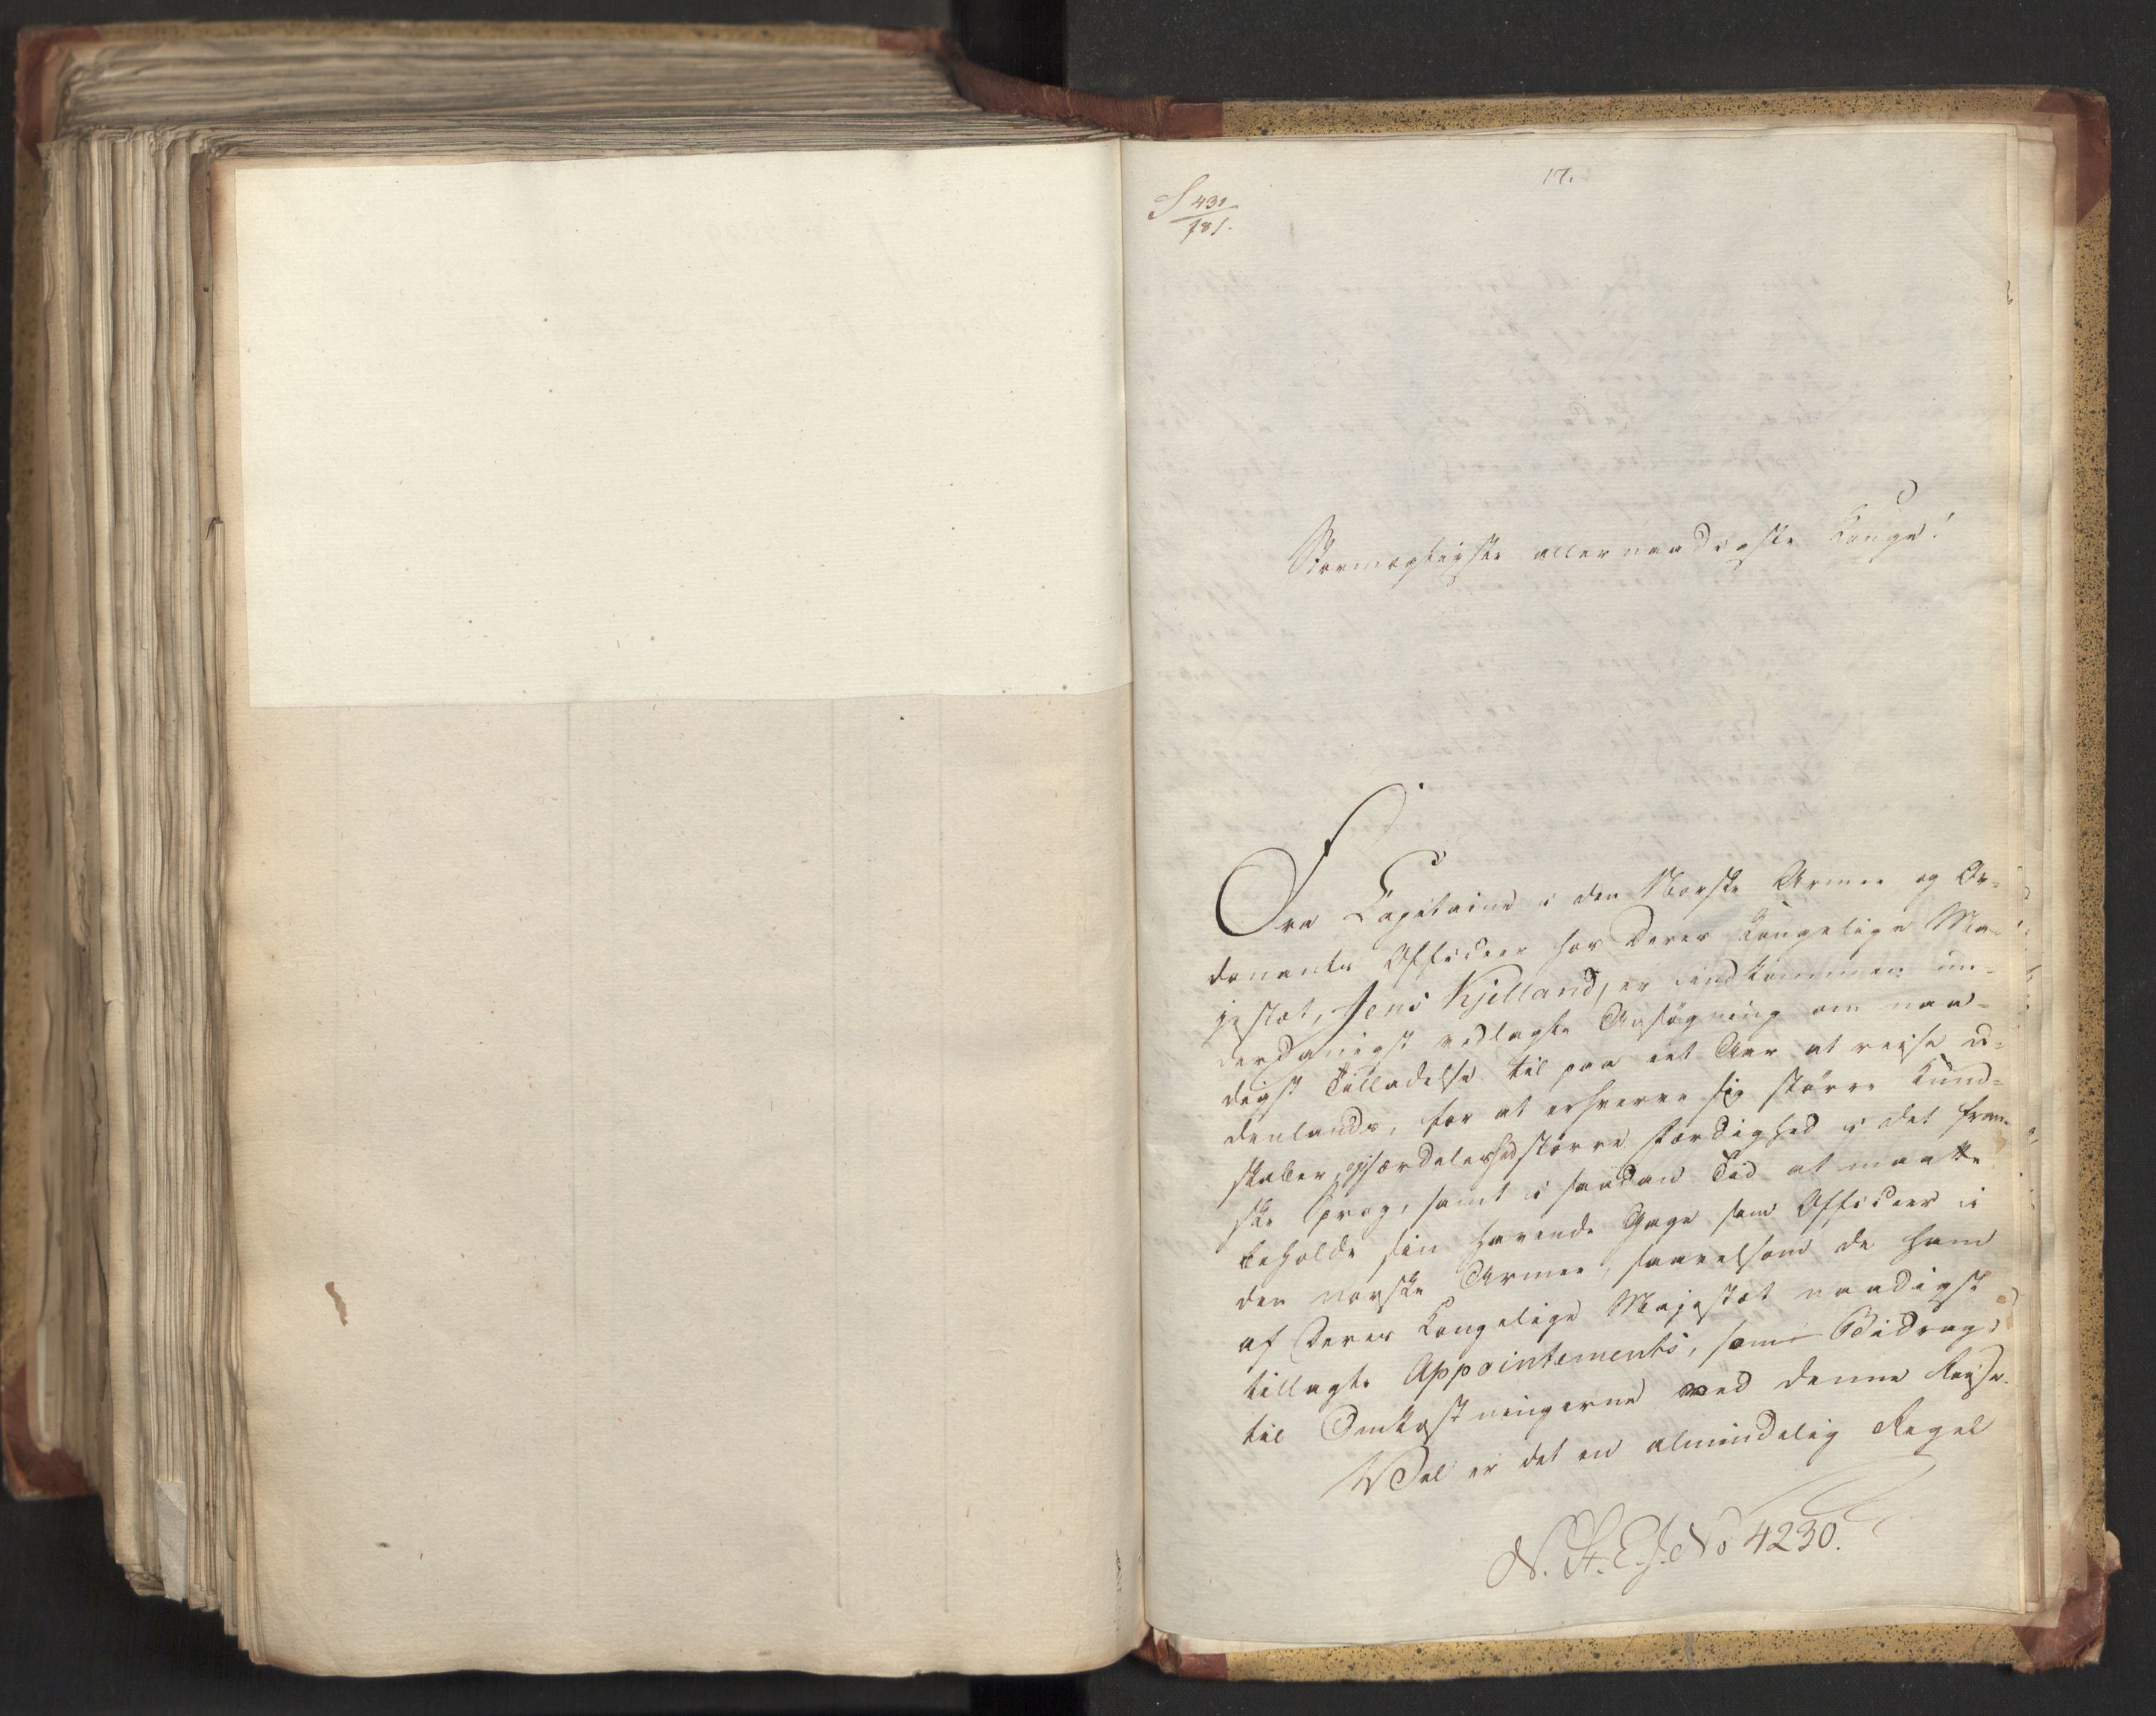 17.
S 431/781.
Stormægtigste allernaadigste Konge!
Fra Capitaine i den Norske Armee og Or-
donants Officeer hos Deres Kongelige Ma-
jestæt, Jens Kjelland, er indkommen un-
derdanigst vedlagte Ansøgning om naa-
digst Tilladelse til paa eet Aar at reise u-
denlands, for at erhverve sig större Kund-
skaber, og særdeleshed större Færdighed i det fran-
ske Sprog, samt i saadan Tid at maatte
beholde sin havende Gage som Officeer i
den norske Armee, saavelsom de ham
af Deres Kongelige Majestæt naadigst
tillagte Appointements, som Bidrag
til Omkostningerne ved denne Reise.
Vel er det en almindelig Regel
N. St. E. J. No 4230.